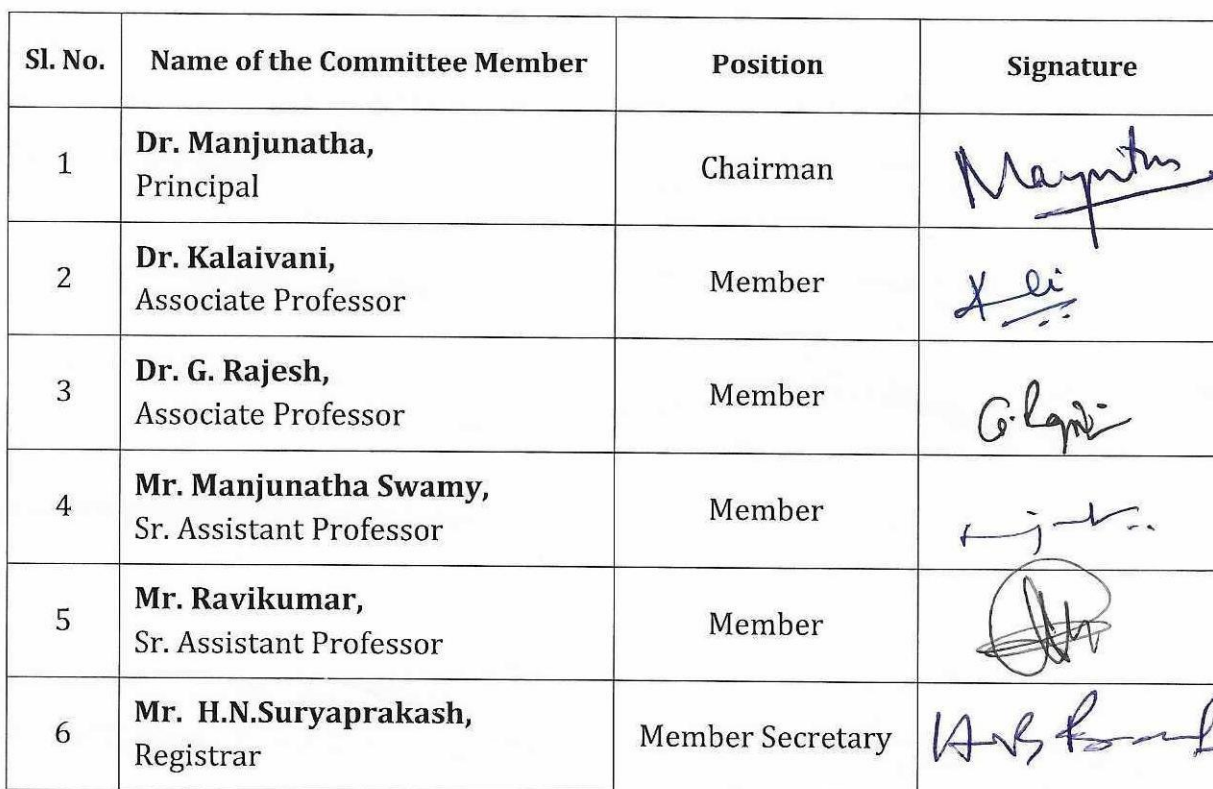 Sl. No. Name of the Committee Member Position Signature
1 Dr. Manjunatha,
Principal Chairman
2 Dr. Kalaivani,
Associate Professor Member
3 Dr. G. Rajesh,
Associate Professor Member
4 Mr. Manjunatha Swamy,
Sr. Assistant Professor Member
5 Mr. Ravikumar,
Sr. Assistant Professor Member
6 Mr. H.N.Suryaprakash,
Registrar Member Secretary